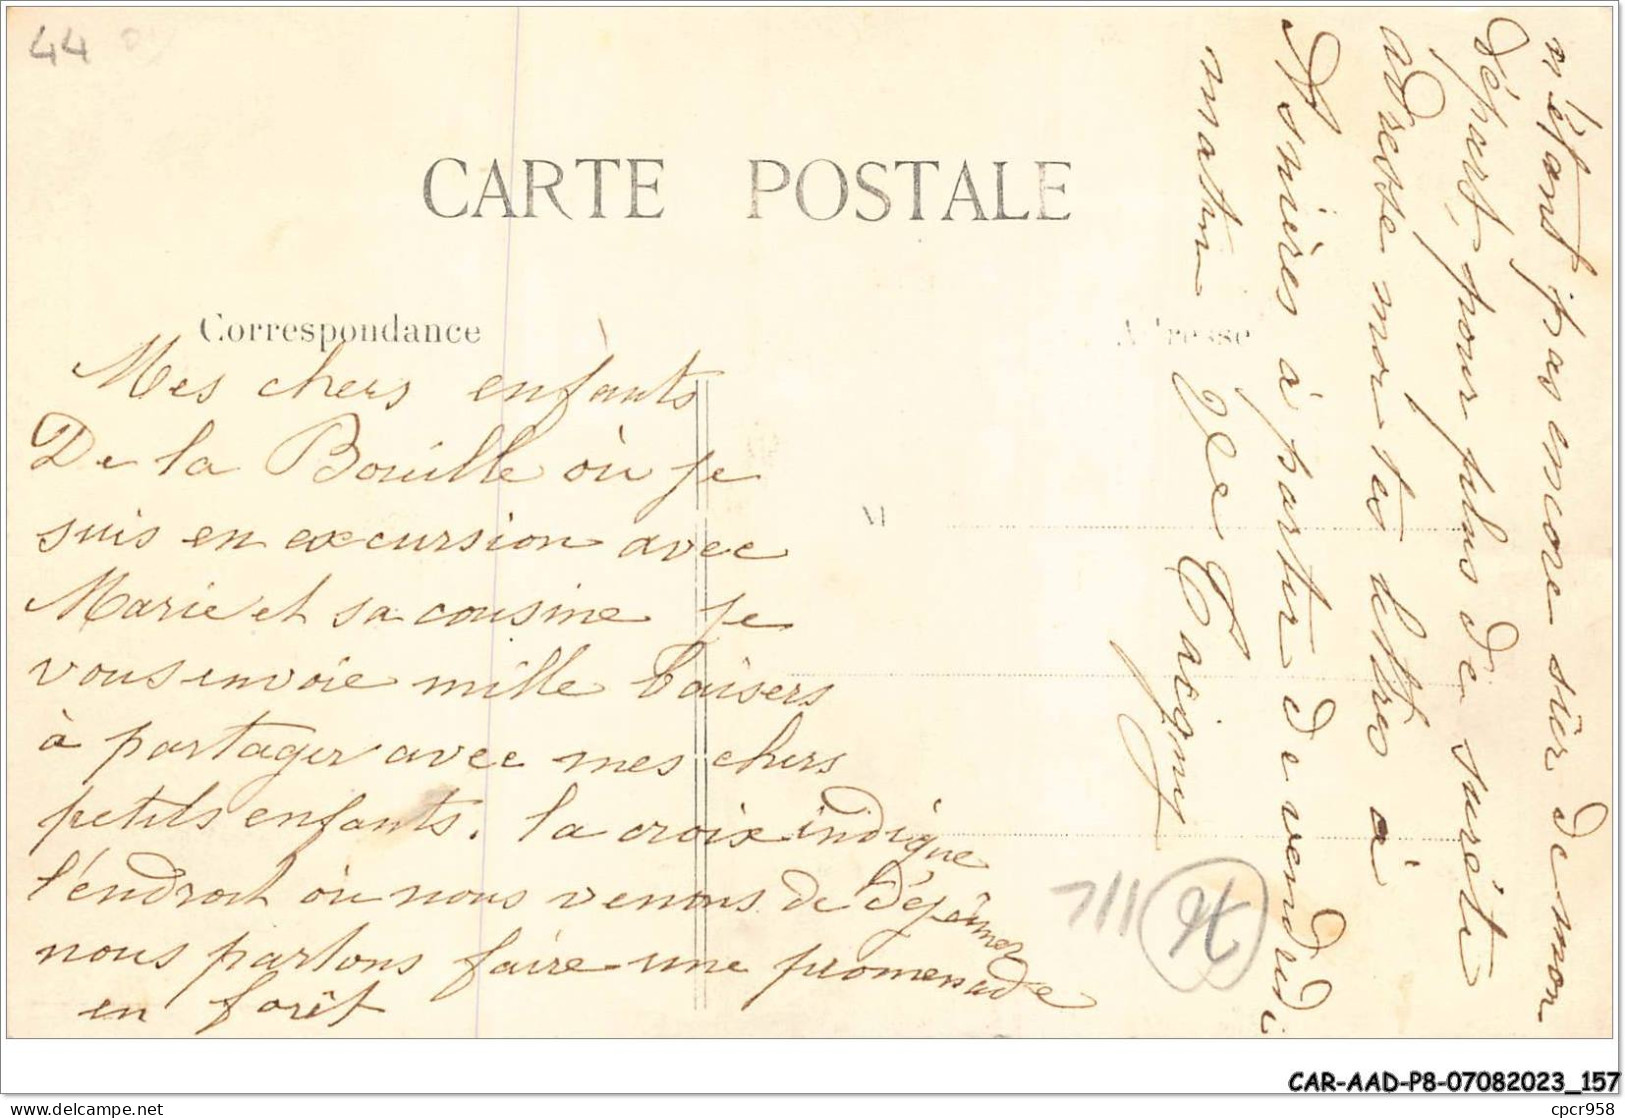 44
CARTE POSTALE
Correspondance
Adresse
M
Mes chers enfants
De la Bouille où je
suis en excursion avec
Marie et sa cousine je
vous envoie mille baisers
à partager avec mes chers
petits enfants. la croix indique
l'endroit où nous venons de déjeûner
nous partons faire une promenade
en forêt
n'étant pas encore sûr de mon
départ, pour plus de sureté
adresse moi tes lettres à
Asnières à partir de vendredi
matin
76
CAR-AAD-P8-07082023_157
delcampe.net
cpcr958